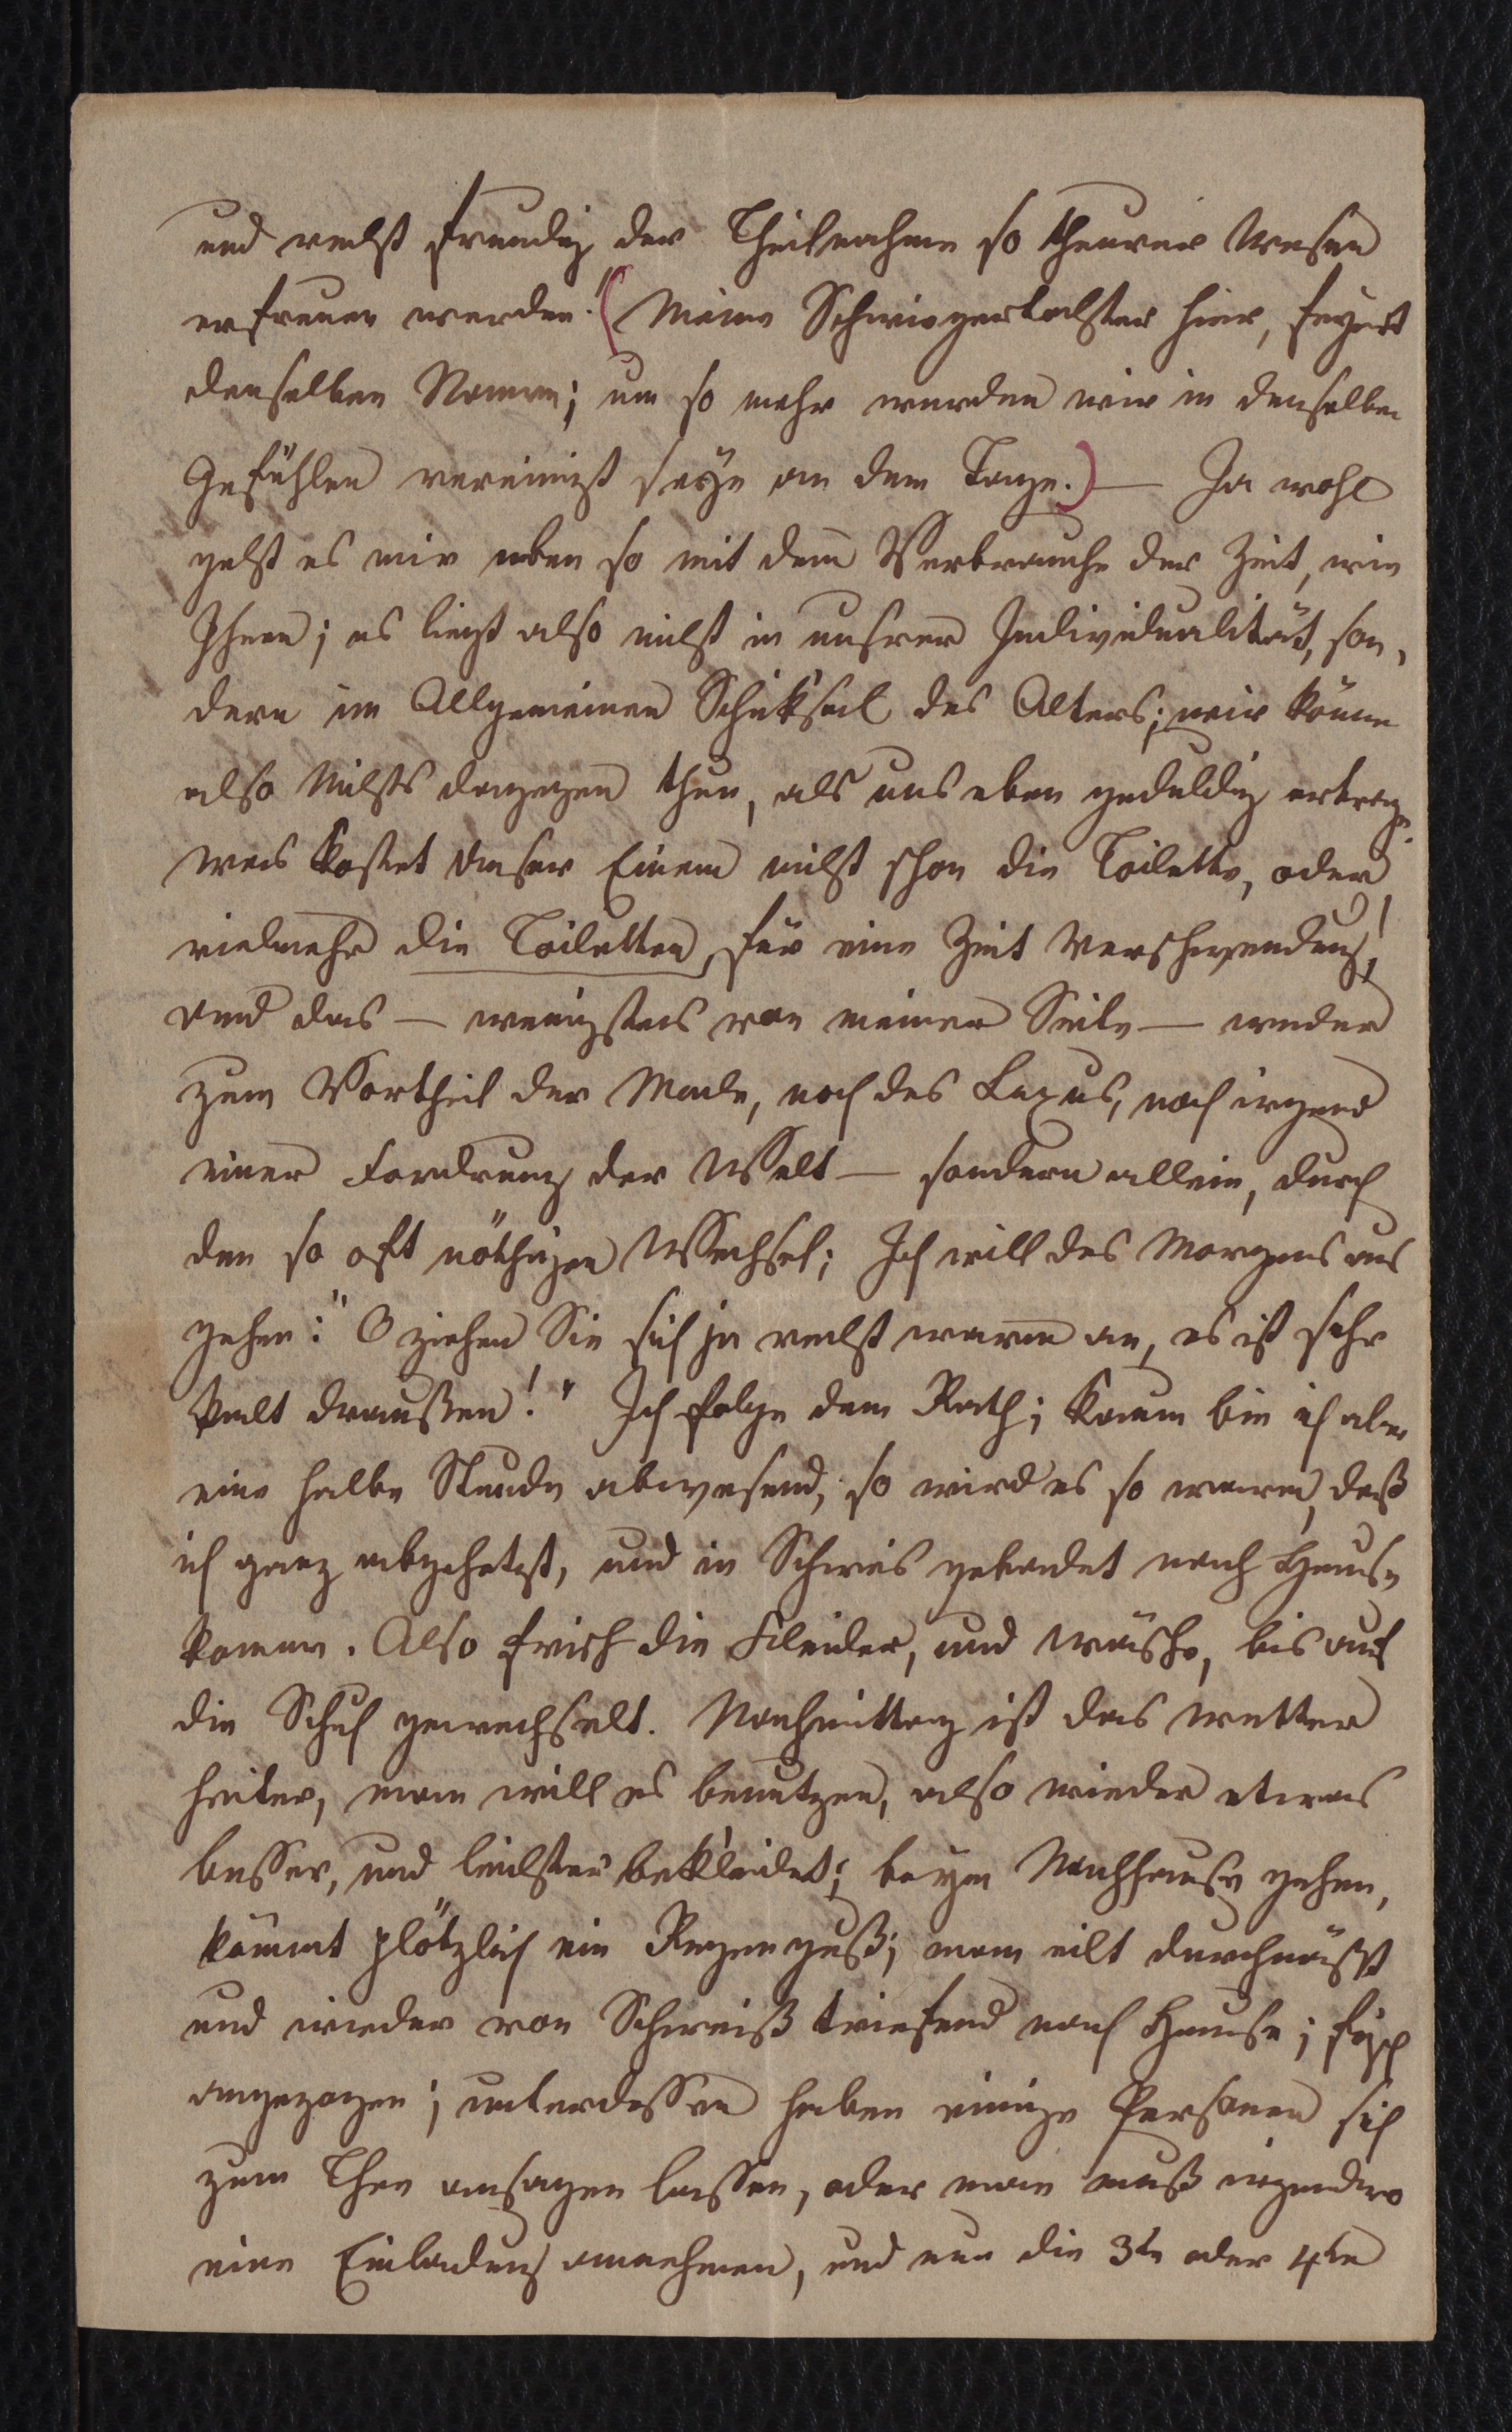 und recht freudig der Theilnahme so theurer Wesen
erfreuen werden. (Meine Schwiegertochter hier, feyert
denselben Namen; um so mehr werden wir in denselben
Gefühlen vereinigt seyn an dem Tage.) — Ja wohl
geht es mir eben so mit dem Verbrauche der Zeit, wie
Ihnen; es liegt also nicht in unsrer Individualität, son,
dern im Allgemeinen Schiksal des Alters; wir könne
also Nichts dagegen thun, als uns eben geduldig ertrage.
Was kostet unser Einem nicht schon die Toilette, oder
vielmehr die Toiletten, für eine Zeit Verschwendung!
und das — wenigstens von meiner Seite — weder
zum Vortheil der Mode, noch des Luxus, noch irgend
einer Fordrung der Welt — sondern allein, durch
den so oft nöthigen Wechsel; Ich will des Morgens aus
gehen: "O ziehen Sie sich ja recht warm an, es ist sehr
kalt draußen!" Ich folge dem Rath; kaum bin ich aber
eine halbe Stunde abwesend, so wird es so warm, daß
ich ganz abgehetzt, und in Schweis gebadet nach Hause
komme. Also frisch die Kleider, und Wäsche, bis auf
die Schuh gewechselt. Nachmittag ist das Wetter
heiter, man will es benutzen, also wieder etwas
besser, und leichter bekleidet; beym Nachhause gehen,
kömmt plötzlich ein Regenguß; man eilt durchnäßt
und wieder von Schweiß triefend nach Hause; frisch
angezogen; unterdessen haben einige Personen sich
zum Thee ansagen lassen, oder man muß irgendwo
eine Einladung annehmen, und nun die 3te oder 4te